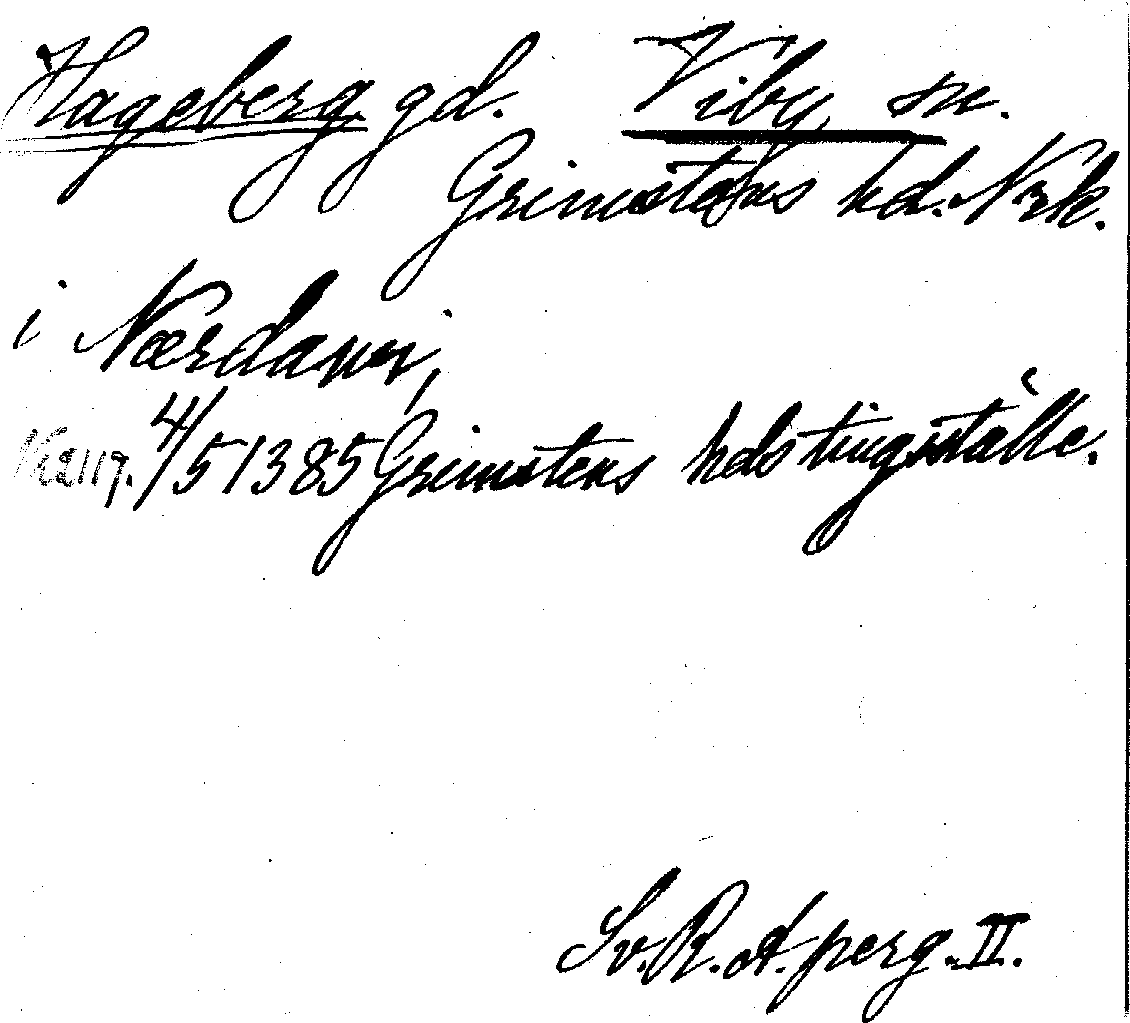 Hageberg gd. Viby, sn.
Grimstens hd. Nrk.
i Nærdawi,
N:2117. 4/5 1385 Grimstens hds tingsställe.
Sv. R. A. perg. II.